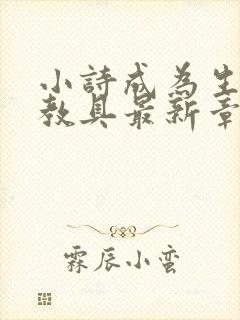 小詩成為生
教具最新章
霖辰小蛮